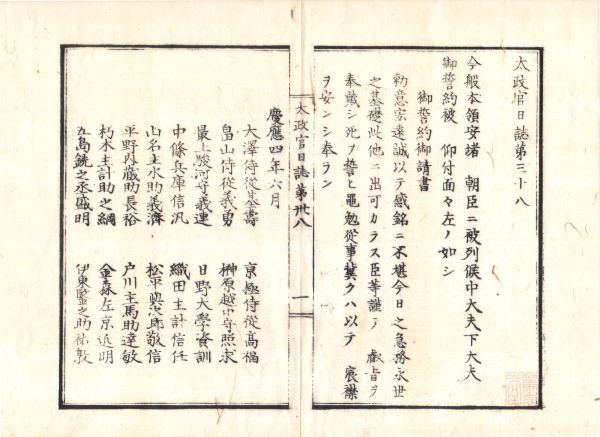 太政官日誌第三十八
今般本領安堵 朝臣ニ被列候中大夫下大夫
御誓約被 仰付面々左ノ如シ
御誓約御請書
勅意宏遠誠以テ感銘ニ不堪今日之急務永世
之基礎此他ニ出可カラス臣等謹テ 叡旨ヲ
奉戴シ死ヲ誓ヒ黽勉從事冀クハ以テ 宸襟
ヲ安ンシ奉ラン
太政官日誌第卅八 一
慶應四年六月
大澤侍從基壽 京極侍從高福
畠山侍從義勇 榊原越中守照求
最上駿河守義連 日野大學資訓
中條兵庫信汎 織田主計信任
山名主水助義濟 松平與次郎敬信
平野内藏助長裕 戸川主馬助達敏
朽木主計助之綱 金森左京近明
五島銑之丞盛明 伊東監之助祐敦